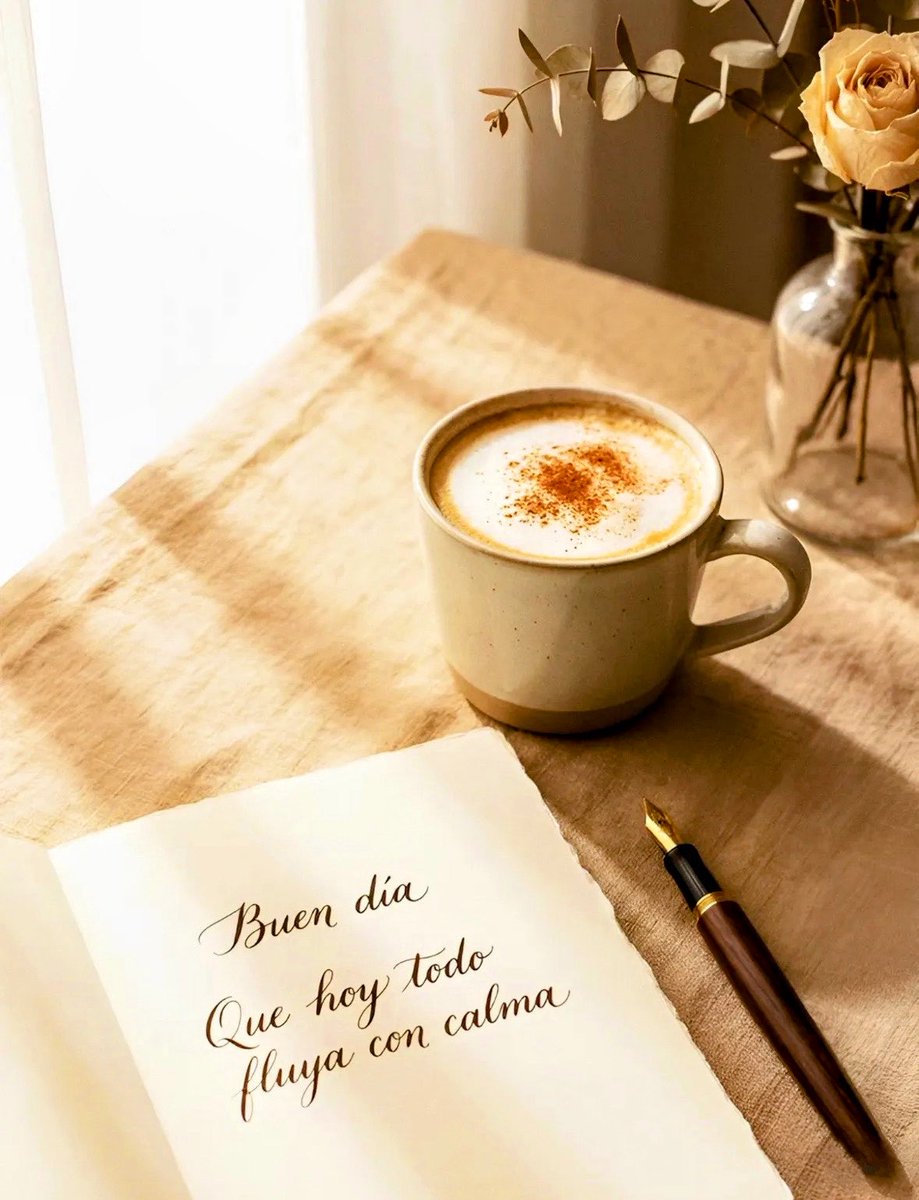 Buen día
Que hoy todo
fluya con calma